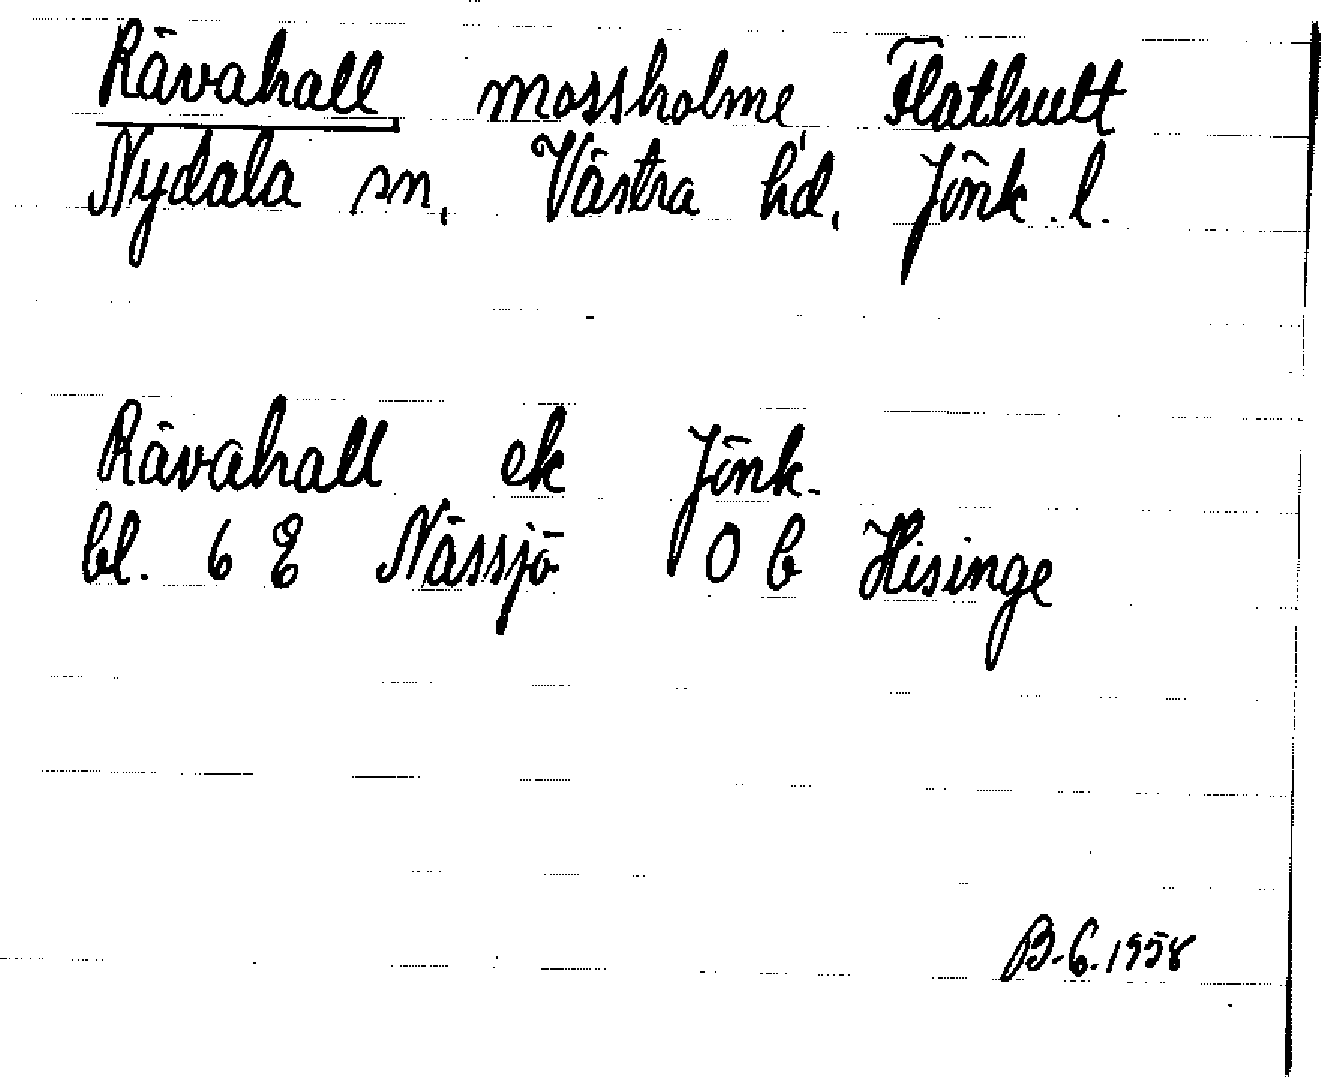 Rävahall mossholme, Flathult
Nydala sn, Västra hd, Jönk. l.
Rävahall ek Jönk.
bl. 6 E Nässjö 0 b Hisinge
B-6.1958